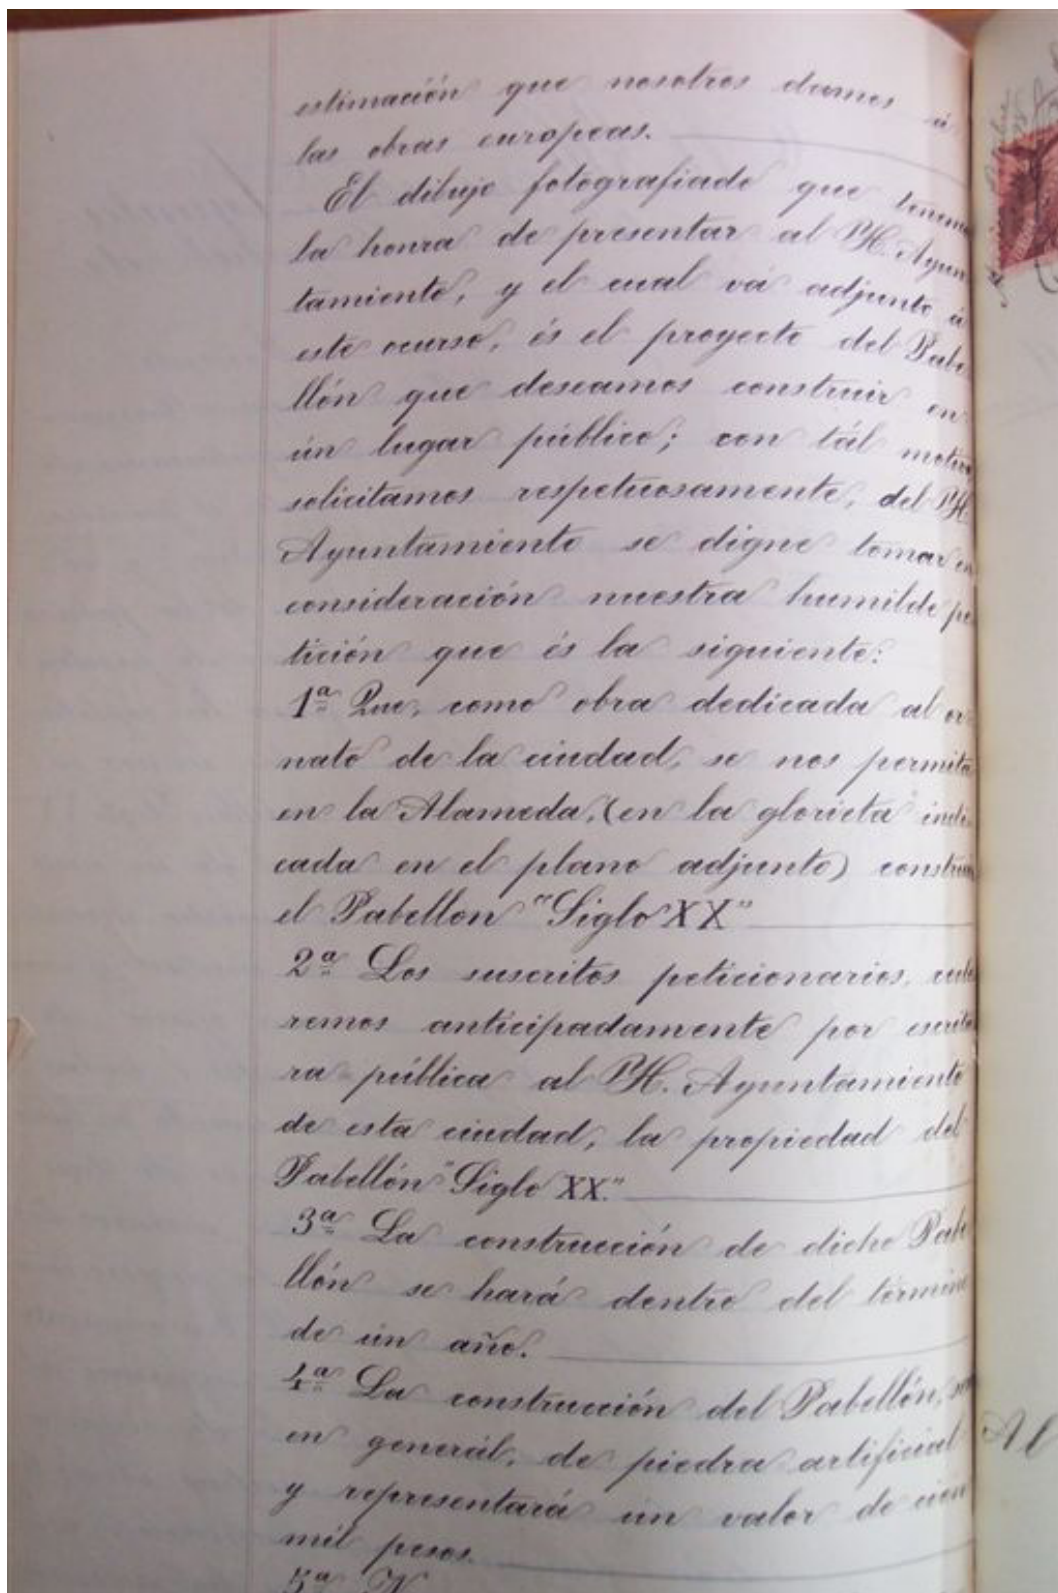 estimación que nosotros damos á
las obras europeas.
El dibujo fotografiado que tenemos
la honra de presentar al H. Ayun
tamiento, y el cual vá adjunto á
este ocurso, és el proyecto del Pabe
llón que deseamos construir en
ún lugar público; con tál motivo
solicitamos respetuosamente, del H.
Ayuntamiento se digne tomar en
consideración nuestra humilde pe
tición que és la siguiente:
1ª Que, como obra dedicada al or
nato de la ciudad, se nos permita
en la Alameda, (en la glorieta indi
cada en el plano adjunto) construir
el Pabellon "Siglo XX"
2ª Los suscritos peticionarios, cede
remos anticipadamente por escritu
ra pública al H. Ayuntamiento
de esta ciudad, la propiedad del
Pabellón "Siglo XX."
3ª La construcción de dicho Pabe
llón se hará dentro del término
de ún año.
4ª La construcción del Pabellón, será
en generál, de piedra artificial
y representará ún valor de cien
mil pesos.
5ª
Al